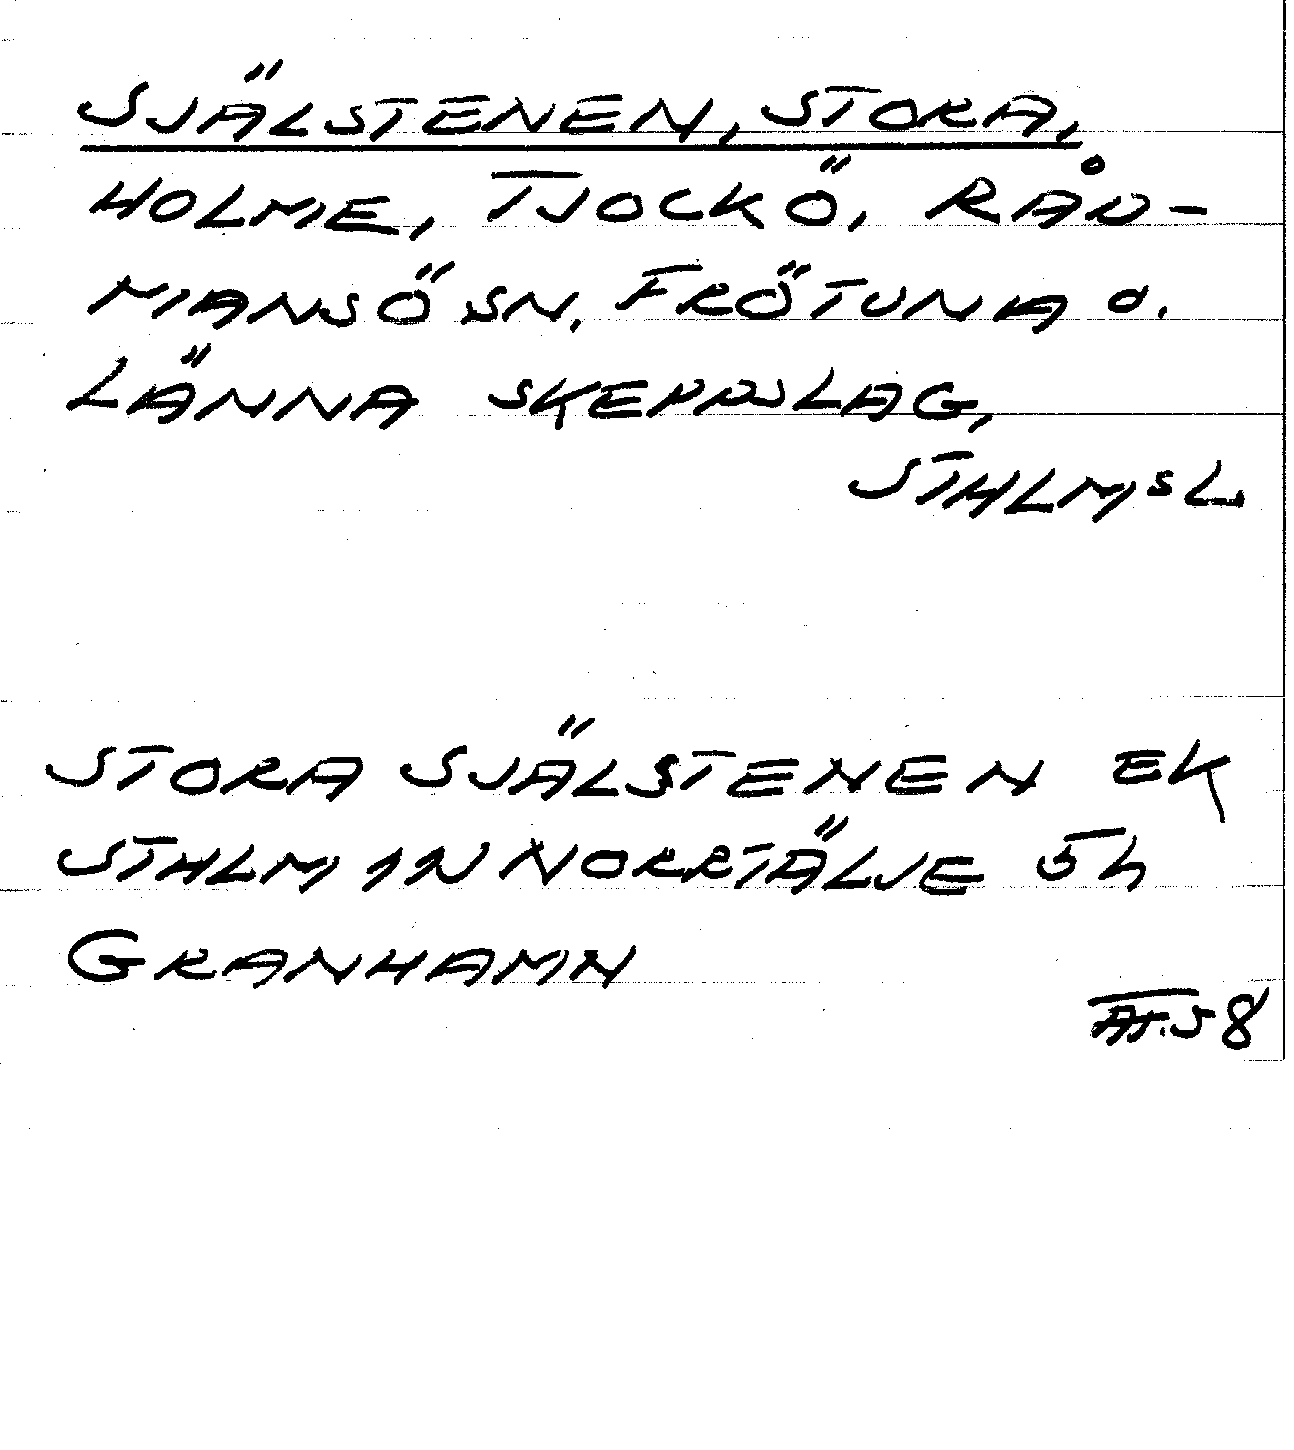 SJÄLSTENEN, STORA,
HOLME, TJOCKÖ, RÅD-
MANSÖ SN, FRÖTUNA O.
LÄNNA SKEPPSLAG,
STHLMSL
STORA SJÄLSTENEN EK
STHLM 11N NORRTÄLJE 5h
GRANHAMN
58